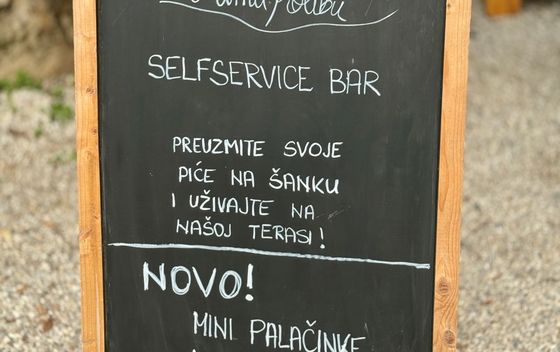 SELFSERVICE BAR
PREUZMITE SVOJE
PIĆE NA ŠANKU
I UŽIVAJTE NA
NAŠOJ TERASI!
NOVO!
MINI PALAČINKE